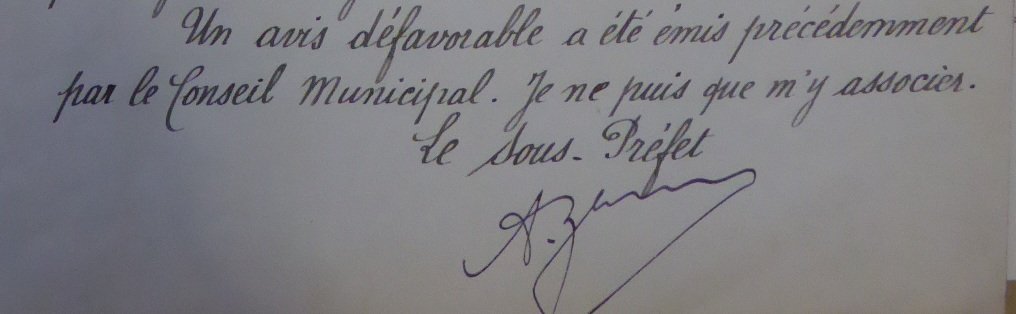 Un avis défavorable a été émis précédemment
par le Conseil Municipal. Je ne puis que m'y associer.
Le Sous-Préfet